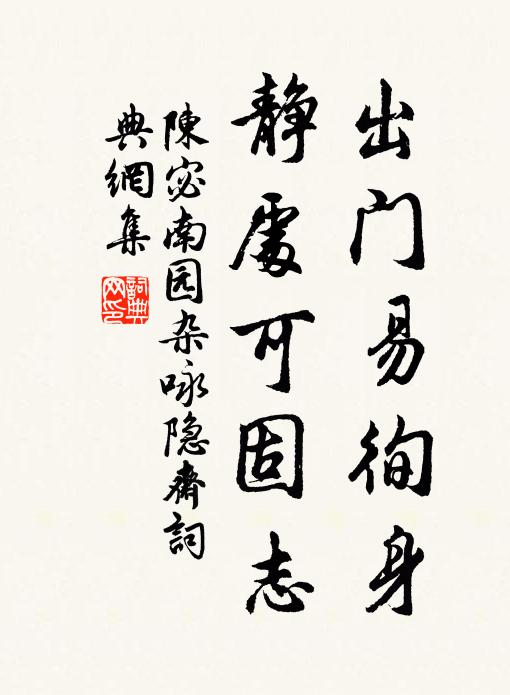 出门易徇身
静處可固志
陳宓南园杂咏隐齋詞
典網集
詞典网印